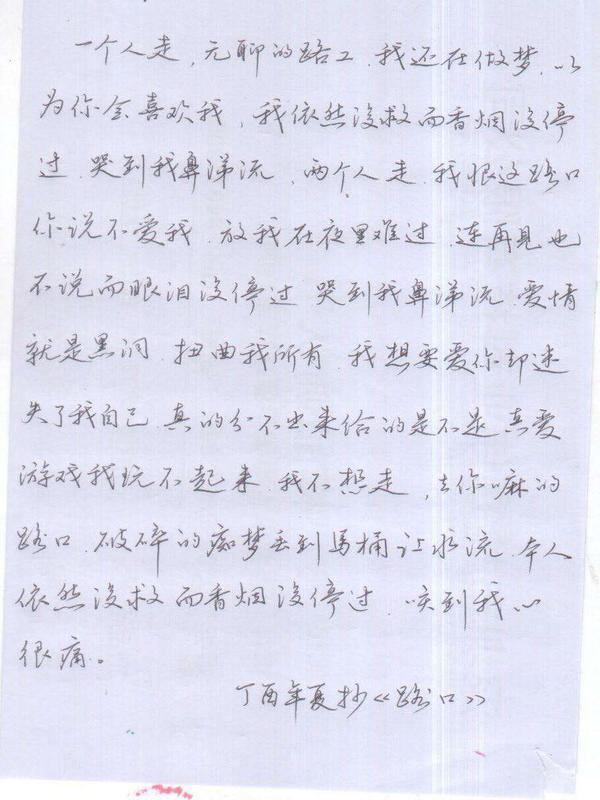 一个人走,无聊的路口.我还在做梦.以
为你会喜欢我,我依然没救而香烟没停
过.哭到我鼻涕流.两个人走.我恨这路口
你说不爱我.放我在夜里难过.连再见也
不说而眼泪没停过 哭到我鼻涕流.爱情
就是黑洞.扭曲我所有.我想要爱你却迷
失了我自己.真的分不出来给的是不是真爱
游戏我玩不起来.我不想走,去你嘛的
路口.破碎的痴梦丢到马桶让水流.本人
依然没救而香烟没停过.哭到我心
很痛。
丁酉年夏抄《路口》